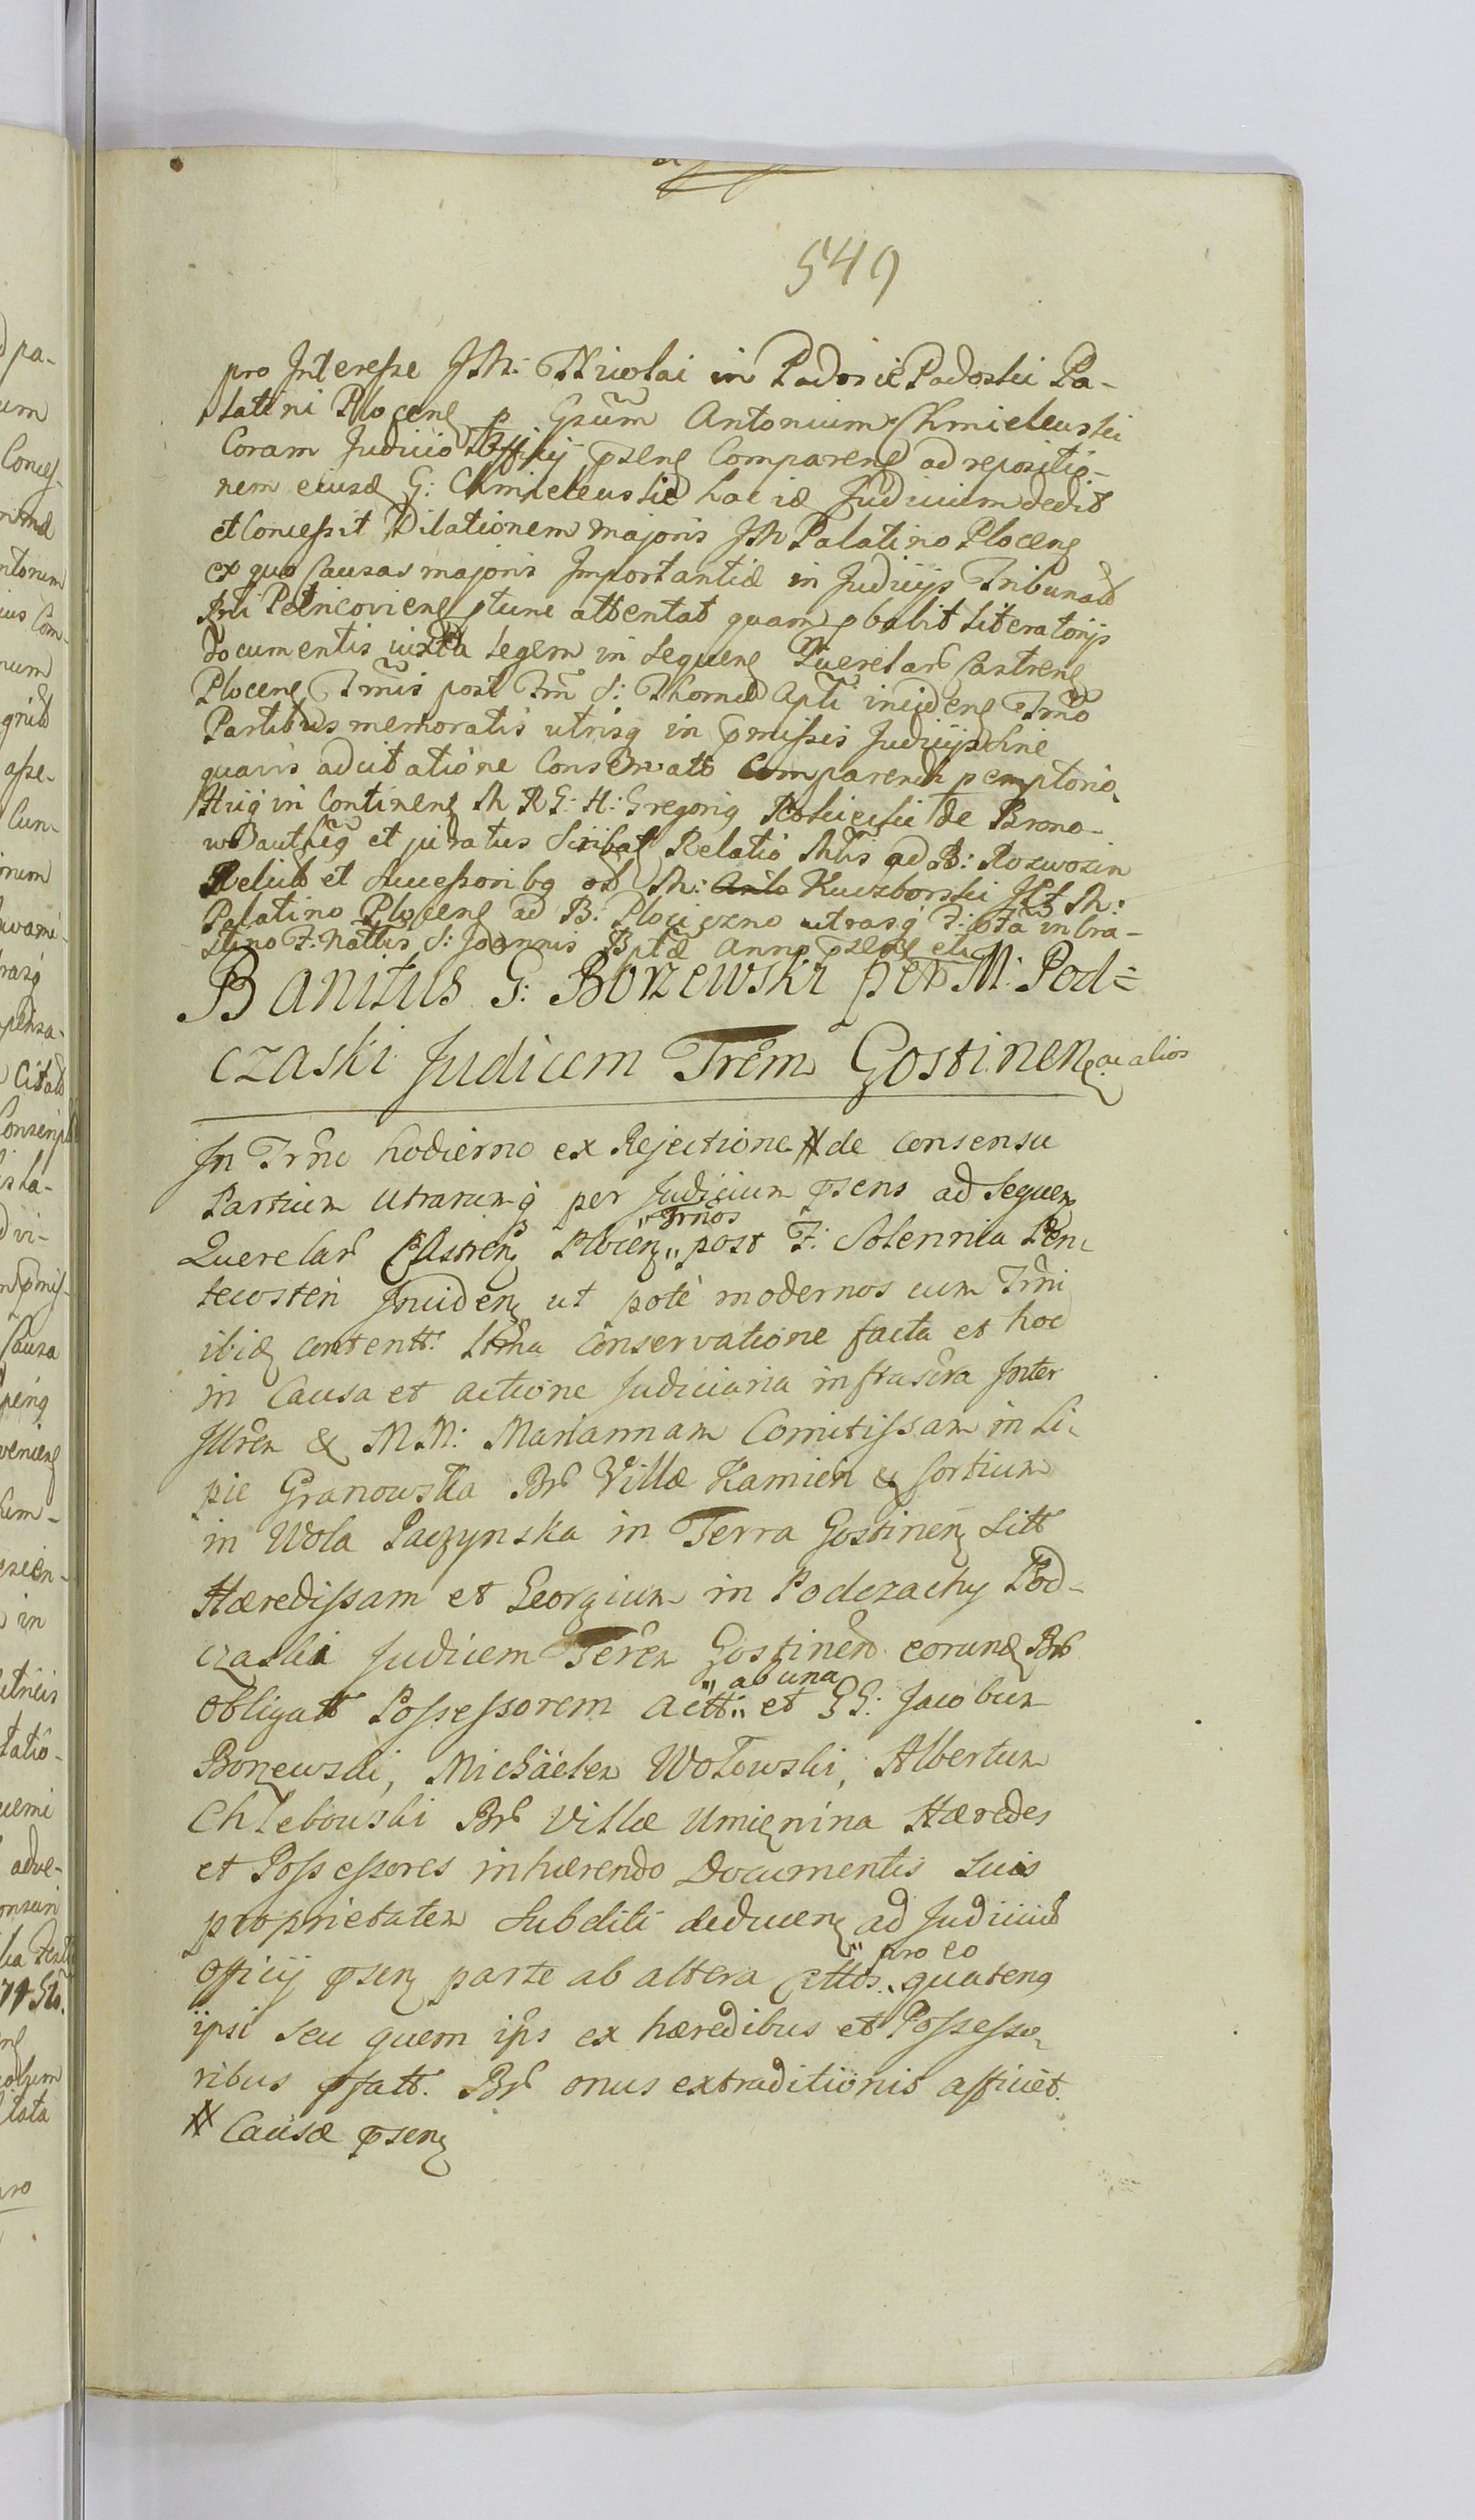 549
pro Interesse JM: Nicolai in Podosie Podoski Pa-
latini Plocens p Gsum Antonium Chmieleuski
Coram Judicio Officij psens Comparens ad repositio-
nem eiusd G: Chmieleuski hac id Judicium dedit
et Concessit Dilationem majoris JM Palatino Plocens
ex quo Causas majoris Importantiæ in Judicijs Tribunalib
Petricoviens tunc attentat quam pbabit Literatorijs
documentis iuxta legem in sequens Querelar Castrens
Plocens Trmis post Trm S: Thomæ Apli incidens Trmo
Partibus memoratis utrisq in pmissis Judicijs sine
quavis adcitatione Conservato Comparendi pemptorio
Huiq in Continens M R G: H: Gregoriq Kosiciski de Brono-
et juratus Scribat Relatio ad B: Rozwozin
Relict et Successoribq M: Kuczborski M:
Palatino Plocens ad B: Plociczno utrasq F:
F: S: Joannis Bptæ Anno psens etc
Banitus G: Borzewski per M: Pod=
czaski Judicem Trem Gostinens ac alios
In Trno hodierno ex Rejectione # de consensu
Partium utrarumq per Judicium psens ad sequen
Querelar Castrens Plocens „Trnos„ post F: Solennia Pen-
tecosten Inciden ut potè modernos cum Trni
ibid content. conservatione facta et hoc
in Causa et actione Judiciaria infrascra Inter
Illren & M.M: Mariannam Comitissam in Li-
pie Granowska Br Villæ Kamien & sortium
in Wola Paczynska in Terra Gostinens Sitt
Hæredissam et Georgium in Podczachy Pod-
czaski Judicem Teren Gostinen eorund Br
obligatt Possessorem actt „ab una„ et GG: Jacobum
Borzewski, Michäelem Wołowski, Albertum
Chlebowski Br Villæ Umienina Hæredes
et Possessores inhærendo Documentis suis
proprietatem subditi deducen ad Judiciũ
Officij psen parte ab altera cittos „pro eo„ quatenq
ipsi seu quem ips ex hæredibus et Possesso-
ribus pfatt. Br onus extraditionis afficiet.
# Causæ psens